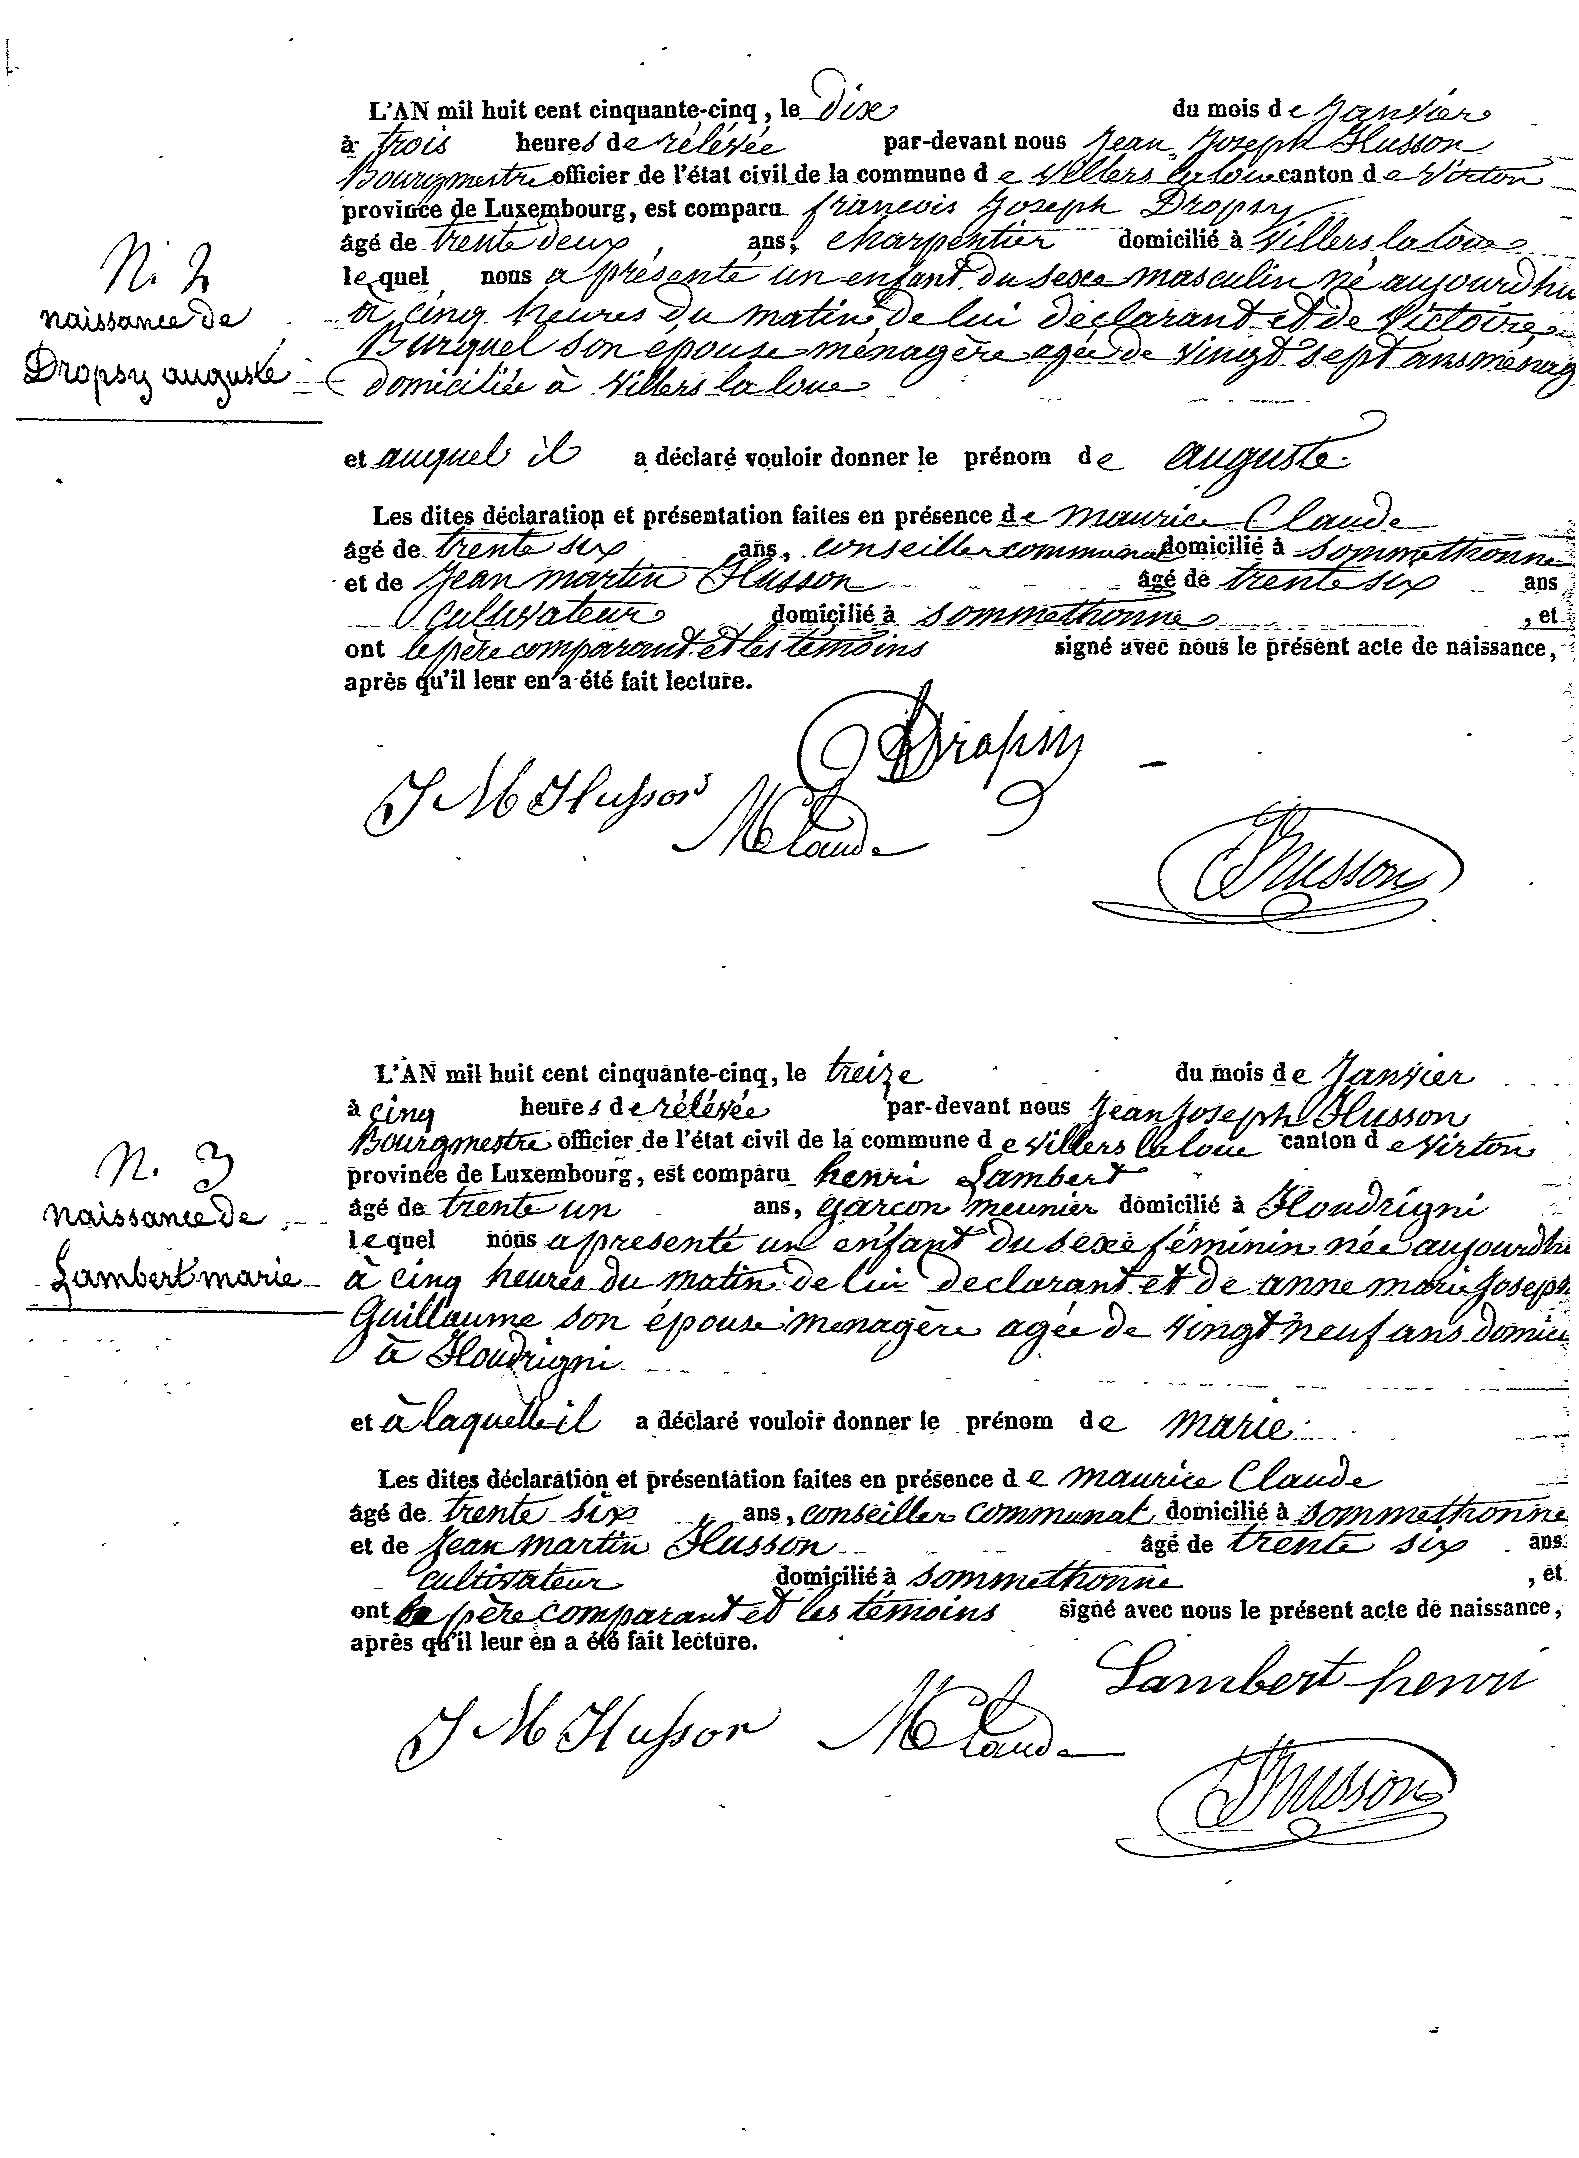 L'AN mil huit cent cinquante-cinq, le dix du mois de Janvier
à trois heures de rélévée par-devant nous Jean Joseph Husson
Bourgmestre officier de l'état civil de la commune de Villers la loue canton de Virton
province de Luxembourg, est comparu francois Joseph Dropsy
âgé de trente deux ans, charpentier domicilié à Villers la loue
N. 2
lequel nous a présenté un enfant du sexe masculin né aujourdhui
naissance de
à cinq heures du matin de lui déclarant et de Victoire
Dropsy auguste
Burquel son épouse ménagère agée de vingt sept ans ménag
domiciliée à Villers la loue
et auquel il a déclaré vouloir donner le prénom de auguste.
Les dites déclaration et présentation faites en présence de maurice Claude
âgé de trente six ans, conseiller communal domicilié à sommethonne
et de Jean martin Husson âgé de trente six ans
cultivateur domicilié à sommethonne , et
ont le père comparant et les témoins signé avec nous le présent acte de naissance,
après qu'il leur en a été fait lecture.
Dropsy
J M Husson
M Claude
Husson
L'AN mil huit cent cinquante-cinq, le treize du mois de Janvier
à cinq heures de rélévée par-devant nous Jean Joseph Husson
Bourgmestre officier de l'état civil de la commune de Villers la loue canton de Virton
N. 3
province de Luxembourg, est comparu henri Lambert
naissance de
âgé de trente un ans, garcon meunier domicilié à Houdrigni
lequel nous a présenté un enfant du sexe féminin née aujourdhu
Lambert marie
à cinq heures du matin de lui declarant et de anne marie Joseph
Guillaume son épouse menagère agée de vingt neuf ans domici
à Houdrigni
et à laquelle il a déclaré vouloir donner le prénom de marie
Les dites déclaration et présentation faites en présence de maurice Claude
âgé de trente six ans, conseiller communal domicilié à sommethonne
et de Jean martin Husson âgé de trente six ans
cultivateur domicilié à sommethonne , et
ont le père comparant et les témoins signé avec nous le présent acte de naissance,
après qu'il leur en a été fait lecture.
Lambert henri
J M Husson M Claude
Husson